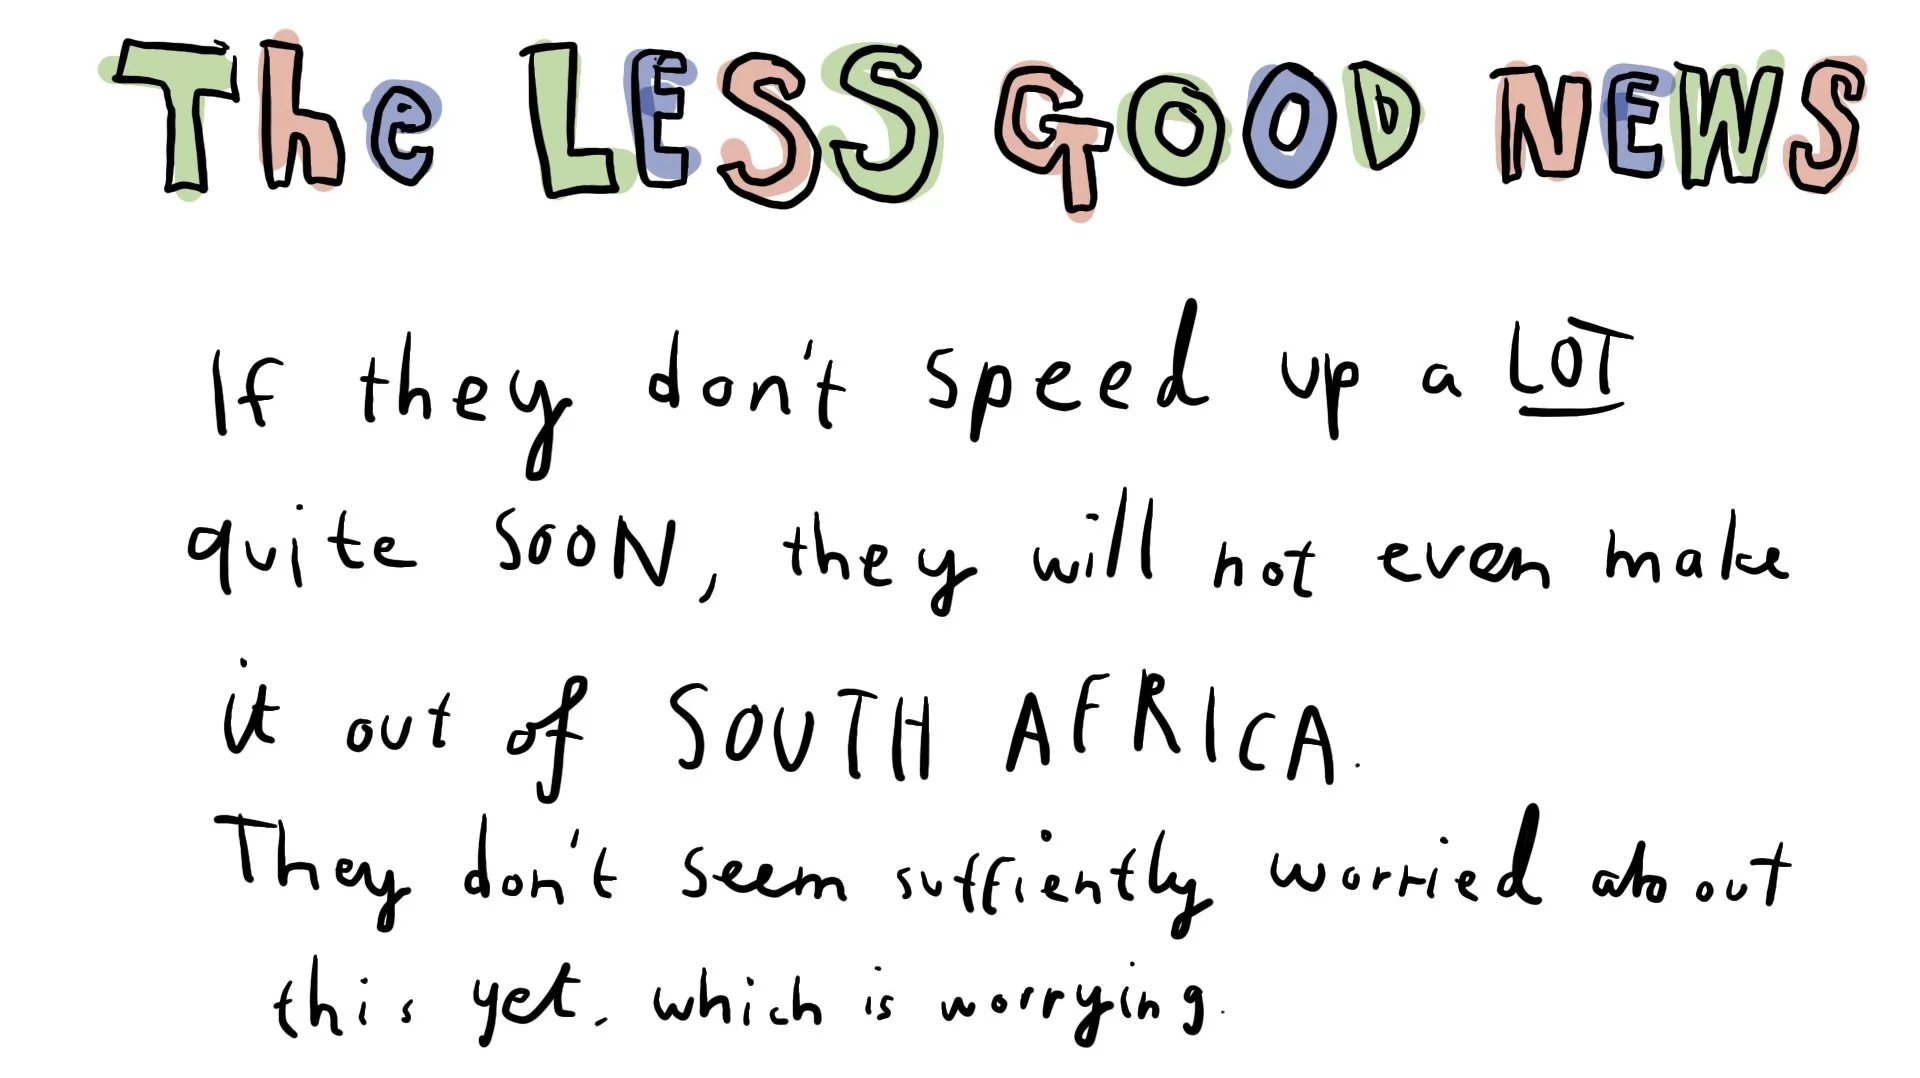 The LESS GOOD NEWS
If they don't speed up a LOT
quite SOON, they will not even make
it out of SOUTH AFRICA.
They don't seem suffiently worried about
this yet, which is worrying.